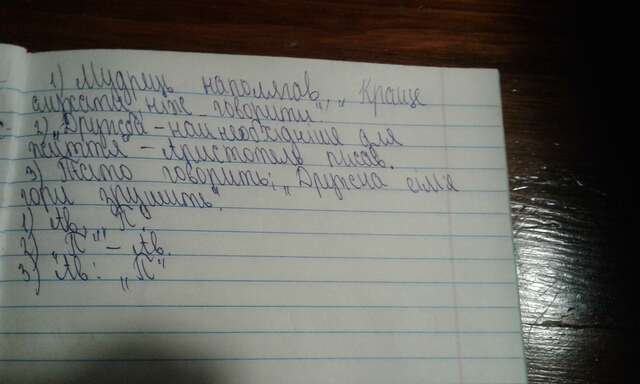 1) Мудрець наполягав, „Краще
мовчати, ніж говорити".
2) „Дружба – найнеобхідніше для
життя – Аристотель писав.
3) Тато говорить: „Дружна сім'я
гори зрушить".
1) Ав, „П".
2) „П" – Ав.
3) Ав: „П"